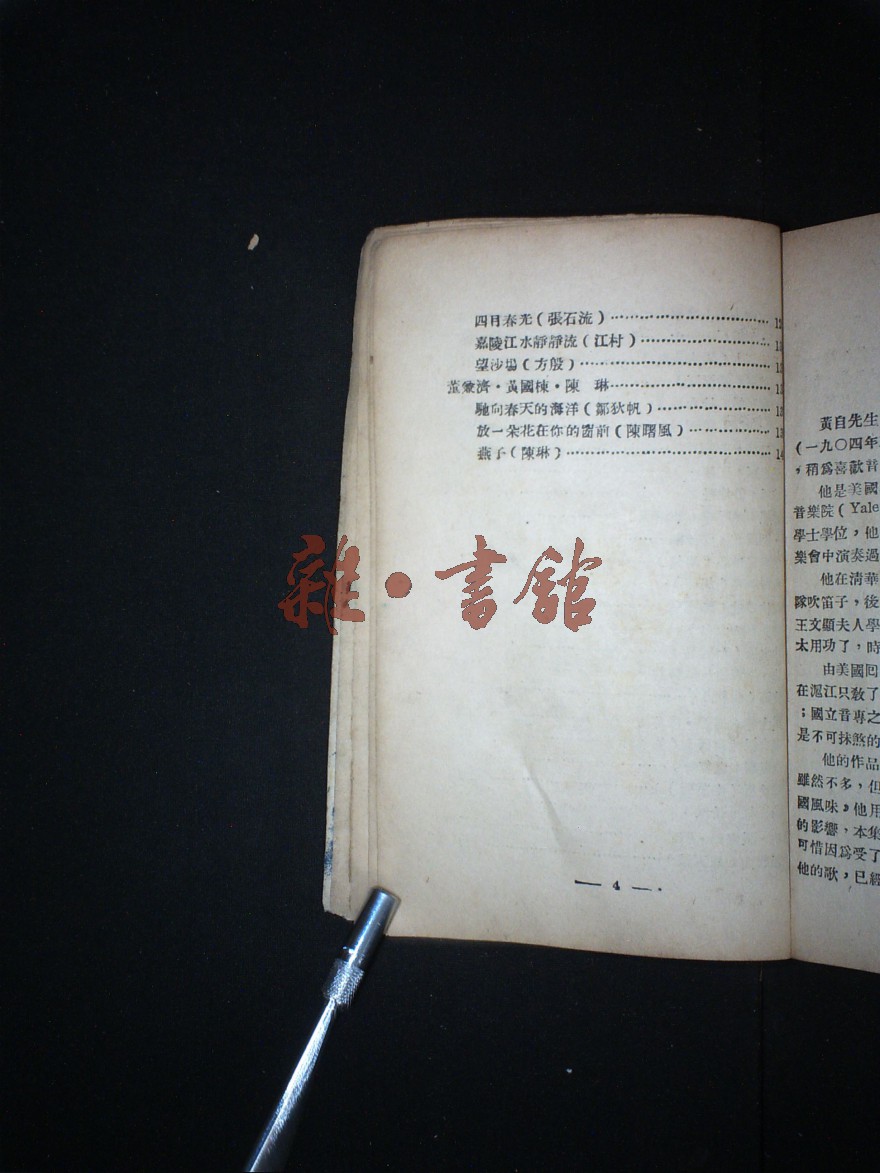 四月春光(張石流)⋯⋯⋯⋯⋯⋯⋯⋯⋯⋯
嘉陵江水靜靜流(江村)⋯⋯⋯⋯⋯⋯⋯⋯
望沙場(方殷)⋯⋯⋯⋯⋯⋯⋯⋯⋯⋯
黃國棟·陳 琳⋯⋯⋯⋯⋯⋯⋯⋯
馳向春天的海洋(鄒狄帆)⋯⋯⋯⋯⋯⋯
放一朵花在你的窗前(陳曙風)⋯⋯⋯⋯⋯
燕子(陳琳)⋯⋯⋯⋯⋯⋯⋯⋯⋯⋯ 14
雜·書館
— 4 —
黃自先生
(一九〇四年
,稍爲喜歡音
他是美國
音樂院(Yale
學士學位,他
樂會中演奏過
他在清華
隊吹笛子,後
王文顯夫人學
太用功了,時
由美國回
在滬江只敎了
;國立音專之
是不可抹煞的
他的作品
雖然不多,但
國風味。他用
的影響,本集
可惜因爲受了
他的歌,已經